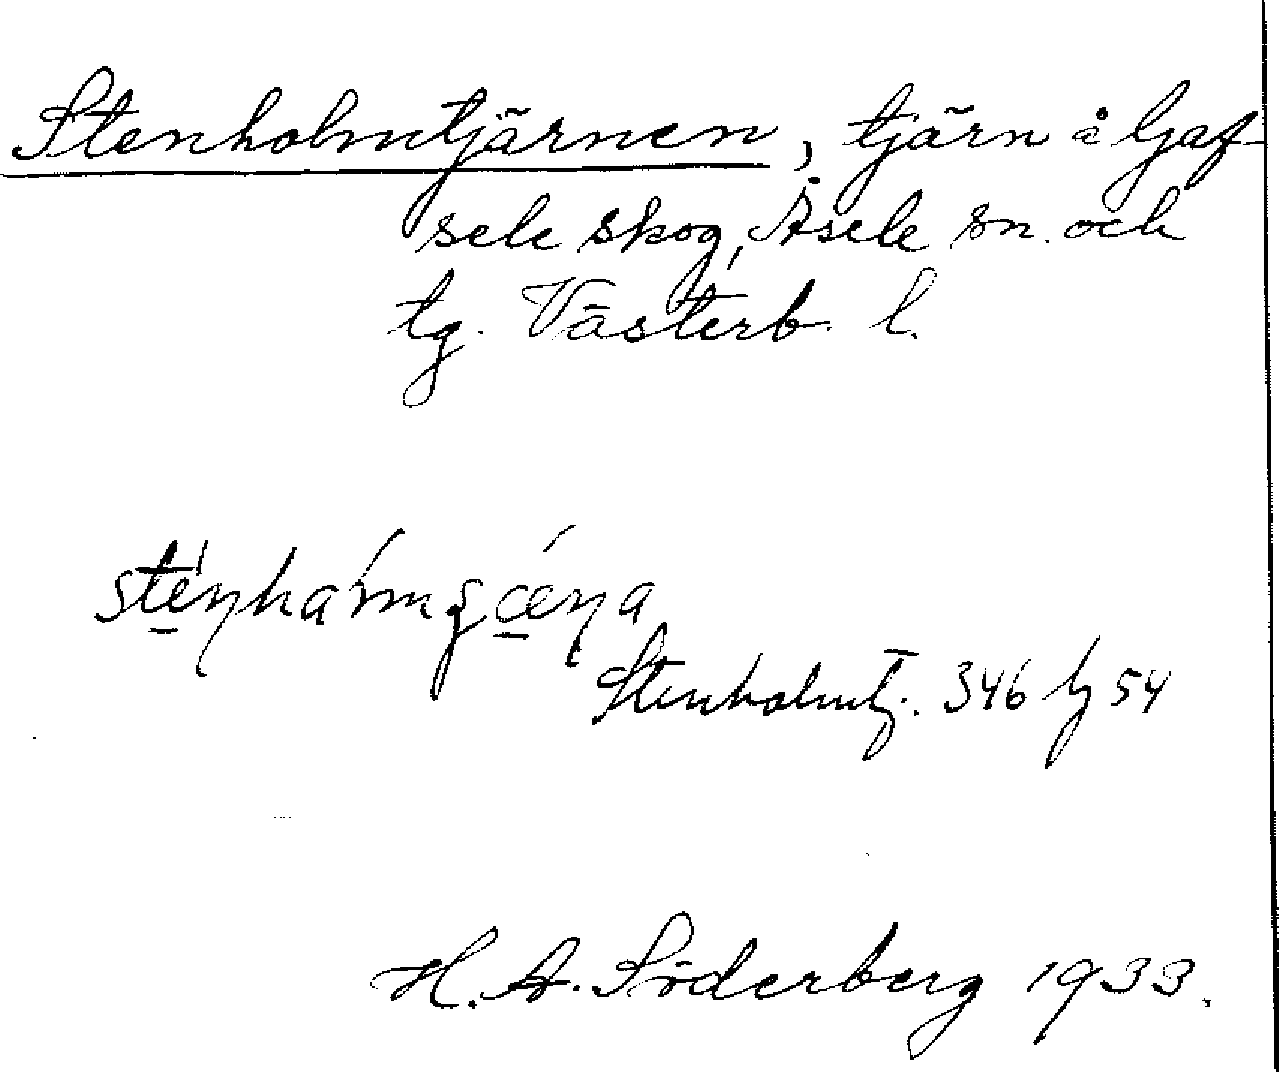 Stenholmtjärnen, tjärn å Gaf-
sele skog, Åsele sn. och
tg. Västerb. l.
Stenholmtj. 346 54
H. A. Söderberg 1933.